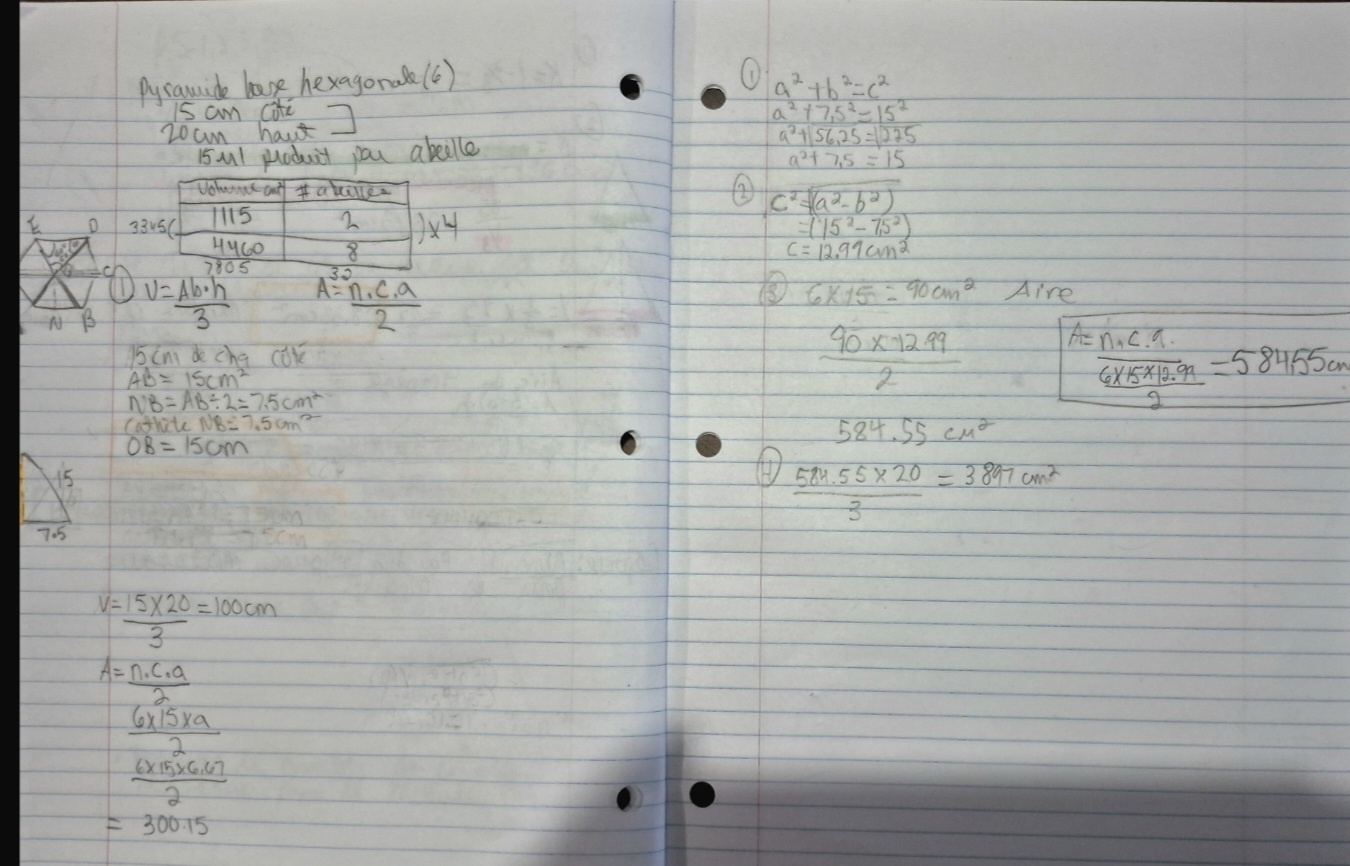 Pyramide base hexagonale (6)
15 cm côté
20 cm haut
15 ml produit par abeille
Volume cm³ # abeilles
1115 2
3345( )x4
4460 8
7805 30
E D
C
N B
① V = Ab·h / 3 A = n.c.a / 2
15 cm de chq côté
AB = 15cm²
NB = AB ÷ 2 = 7.5cm²
Cathète NB = 7.5cm²
OB = 15cm
15
7.5
V = 15 X 20 / 3 = 100cm
A = n.c.a / 2
6 x 15 x a / 2
6 x 15 x 6.67 / 2
= 300.15
① a² + b² = c²
a² + 7,5² = 15²
a² + 56,25 = 225
a² + 7,5 = 15
② c² = √(a² - b²)
= (15² - 7,5²)
c = 12.99cm²
③ 6 X 15 = 90 cm² Aire
90 x 12.99 / 2
584.55 cm²
A = n.c.a.
6 X 15 X 12.99 / 2 = 584,55 cm
④ 584.55 x 20 / 3 = 3897 cm²